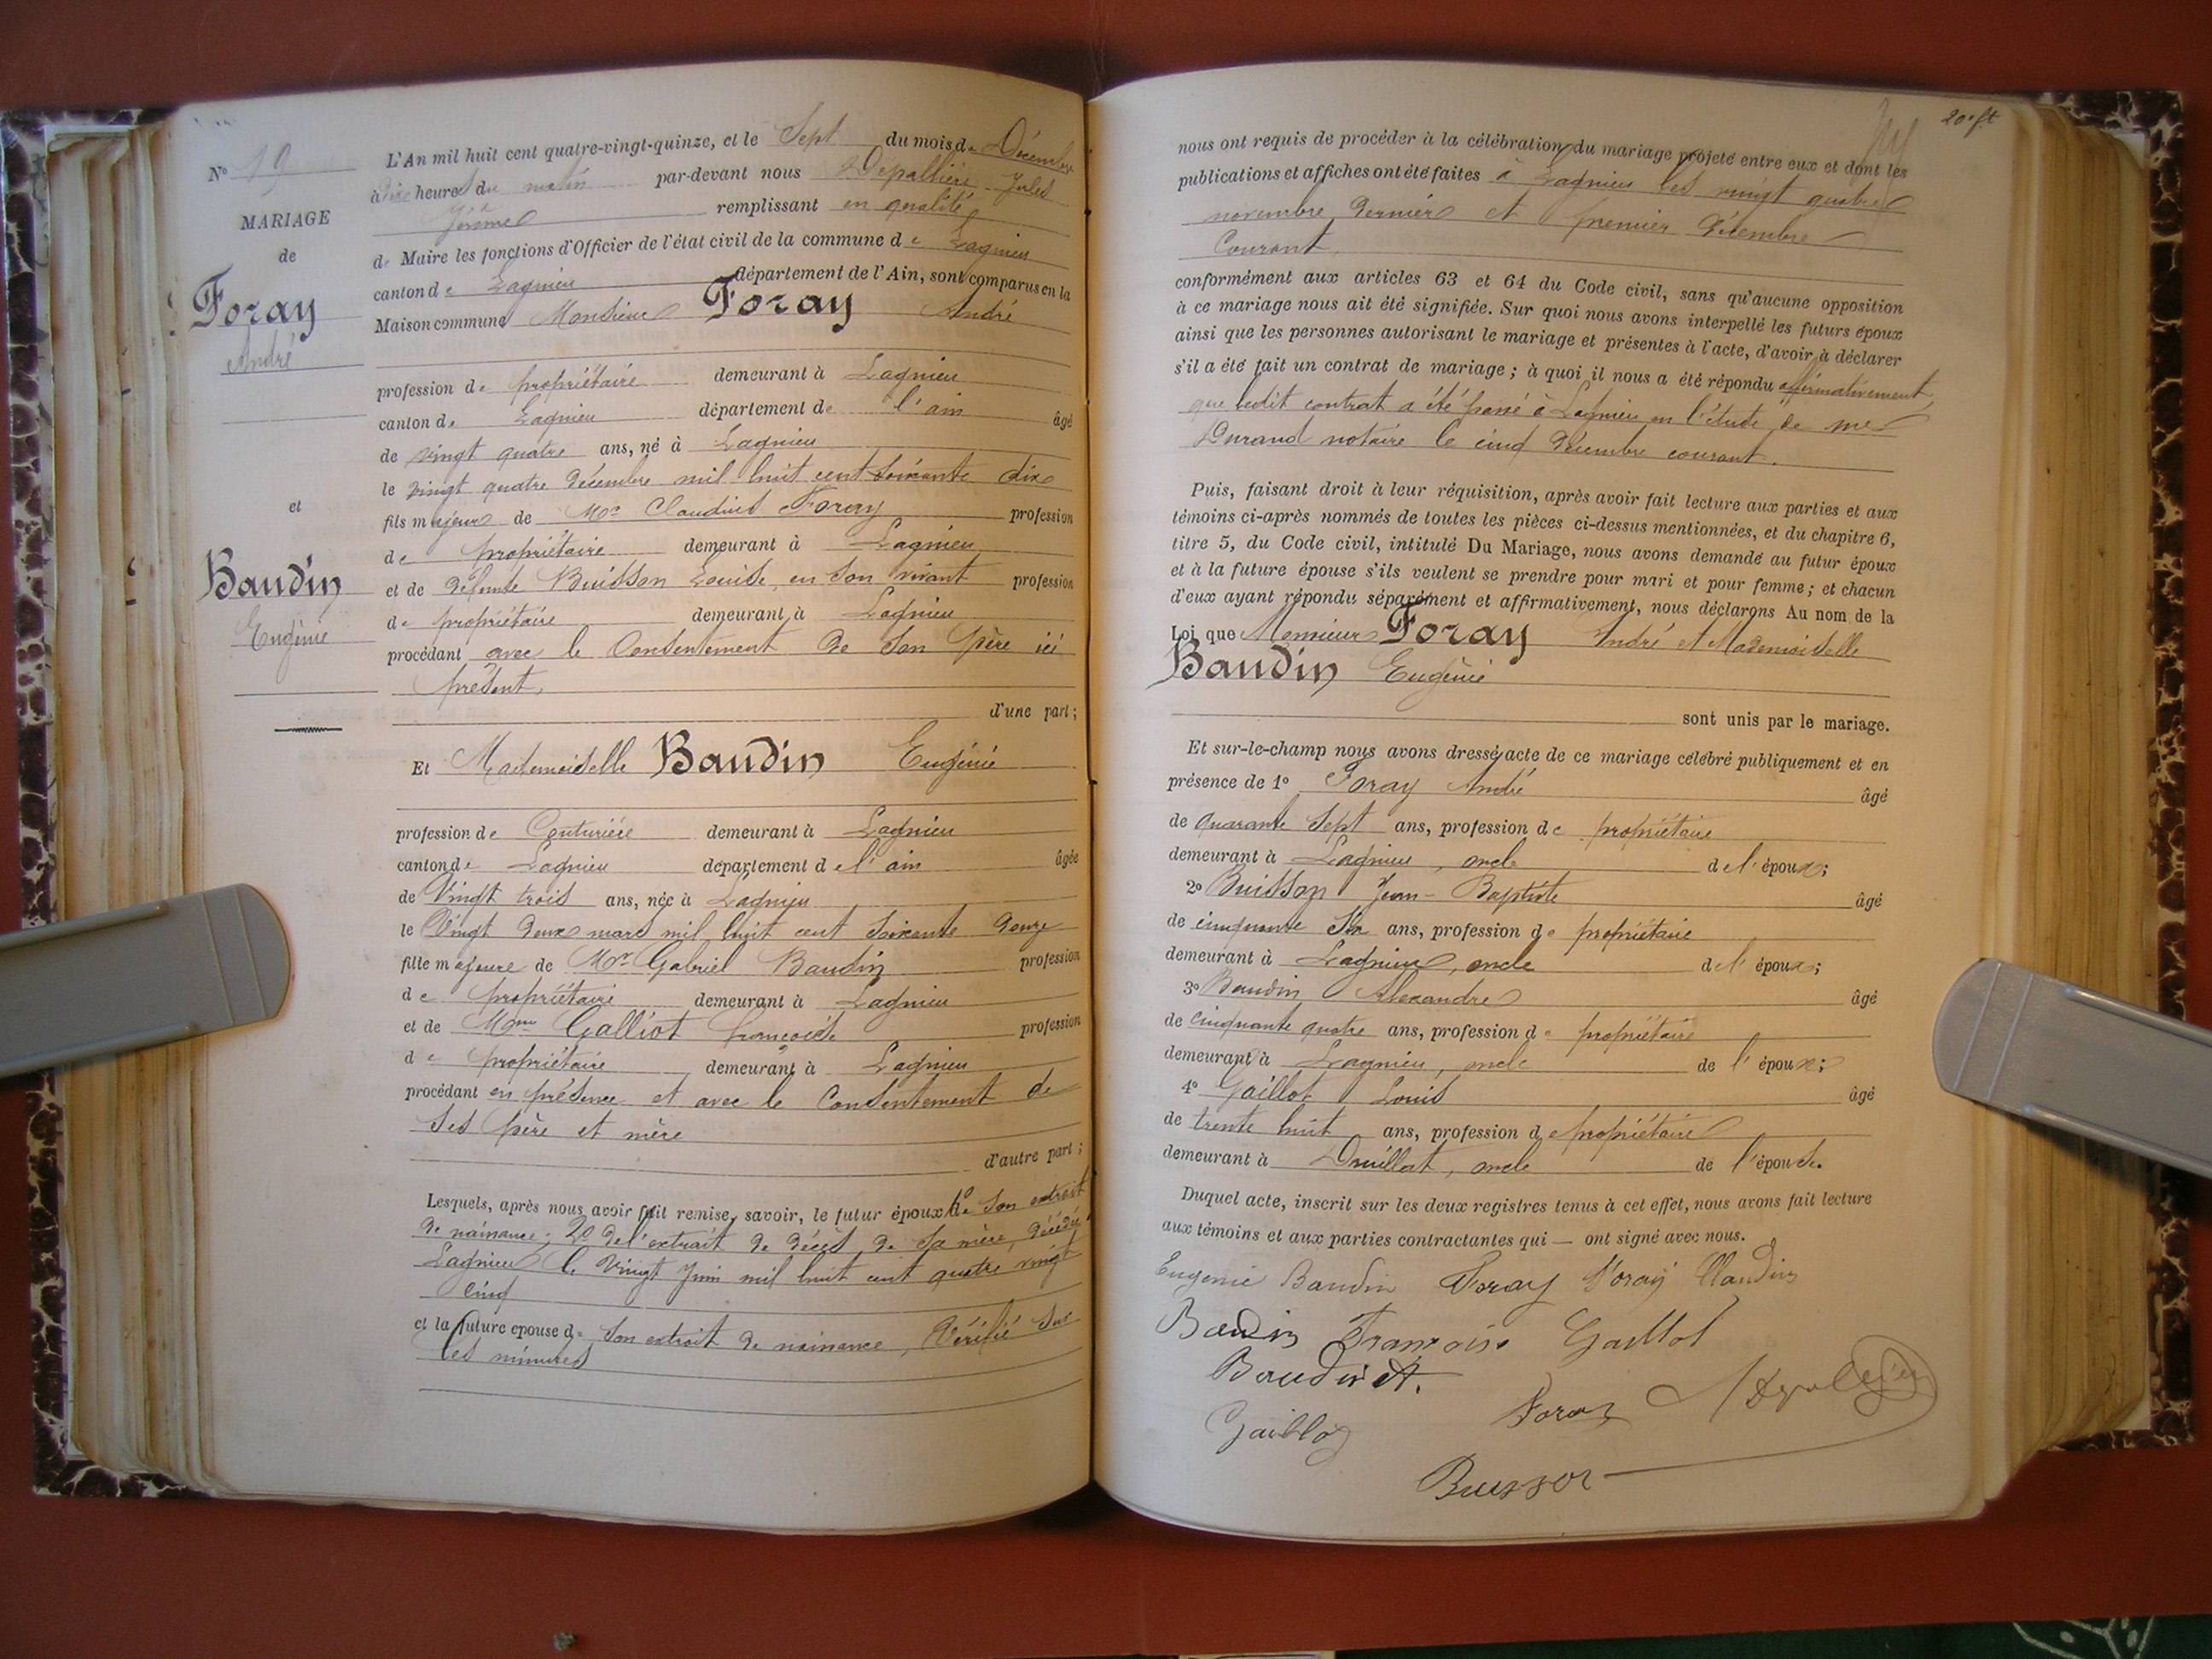 N° 19
MARIAGE
de
Foray
André
et
Baudin
Eugénie
L'An mil huit cent quatre-vingt-quinze, et le Sept du mois de Décembre
à dix heures du matin par-devant nous Dépallière Jules
remplissant en qualité
de Maire les fonctions d'Officier de l'état civil de la commune de Lagnieu
canton de Lagnieu département de l'Ain, sont comparus en la
Maison commune Monsieur Foray André
profession de propriétaire demeurant à Lagnieu
canton de Lagnieu département de l'ain âgé
de vingt quatre ans, né à Lagnieu
le vingt quatre décembre mil huit cent soixante dix
fils majeur de Mr Claudius Foray profession
de propriétaire demeurant à Lagnieu
et de défunte Buisson Louise, en son vivant profession
de propriétaire demeurant à Lagnieu
procédant avec le Consentement de son père ici
présent,
d'une part;
Et Mademoiselle Baudin Eugénie
profession de Couturière demeurant à Lagnieu
canton de Lagnieu département de l'ain âgée
de Vingt trois ans, née à Lagnieu
le Vingt deux mars mil huit cent soixante douze
fille majeure de Mr Gabriel Baudin profession
de propriétaire demeurant à Lagnieu
et de Mme Galliot françoise profession
de propriétaire demeurant à Lagnieu
procédant en présence et avec le Consentement de
ses père et mère
d'autre part;
Lesquels, après nous avoir fait remise, savoir, le futur époux 1° de son extrait
de naissance; 2° de l'extrait de décès de sa mère, décédée
Lagnieu le vingt Juin mil huit cent quatre vingt
cinq
et la future épouse de son extrait de naissance, Vérifié sur
les minutes
20e ft
nous ont requis de procéder à la célébration du mariage projeté entre eux et dont les
publications et affiches ont été faites à Lagnieu les vingt quatre
novembre dernier et premier décembre
Courant
conformément aux articles 63 et 64 du Code civil, sans qu'aucune opposition
à ce mariage nous ait été signifiée. Sur quoi nous avons interpellé les futurs époux
ainsi que les personnes autorisant le mariage et présentes à l'acte, d'avoir à déclarer
s'il a été fait un contrat de mariage; à quoi il nous a été répondu affirmativement,
que ledit contrat a été passé à Lagnieu en l'étude de me
Durand notaire le cinq décembre courant.
Puis, faisant droit à leur réquisition, après avoir fait lecture aux parties et aux
témoins ci-après nommés de toutes les pièces ci-dessus mentionnées, et du chapitre 6,
titre 5, du Code civil, intitulé Du Mariage, nous avons demandé au futur époux
et à la future épouse s'ils veulent se prendre pour mari et pour femme; et chacun
d'eux ayant répondu séparément et affirmativement, nous déclarons Au nom de la
Loi que Monsieur Foray André et Mademoiselle
Baudin Eugénie
sont unis par le mariage.
Et sur-le-champ nous avons dressé acte de ce mariage célébré publiquement et en
présence de 1° Foray André âgé
de quarante sept ans, profession de propriétaire
demeurant à Lagnieu, oncle de l'époux;
2° Buisson Jean-Baptiste âgé
de cinquante six ans, profession de propriétaire
demeurant à Lagnieu, oncle de l'époux;
3° Baudin Alexandre âgé
de cinquante quatre ans, profession de propriétaire
demeurant à Lagnieu, oncle de l'époux;
4° Gaillot Louis âgé
de trente huit ans, profession de propriétaire
demeurant à Druillat, oncle de l'épouse.
Duquel acte, inscrit sur les deux registres tenus à cet effet, nous avons fait lecture
aux témoins et aux parties contractantes qui — ont signé avec nous.
Eugenie Baudin Foray Foray Claudius
Baudin Françoise Gaillot
Baudin A.
Gaillot Foray
Buisson